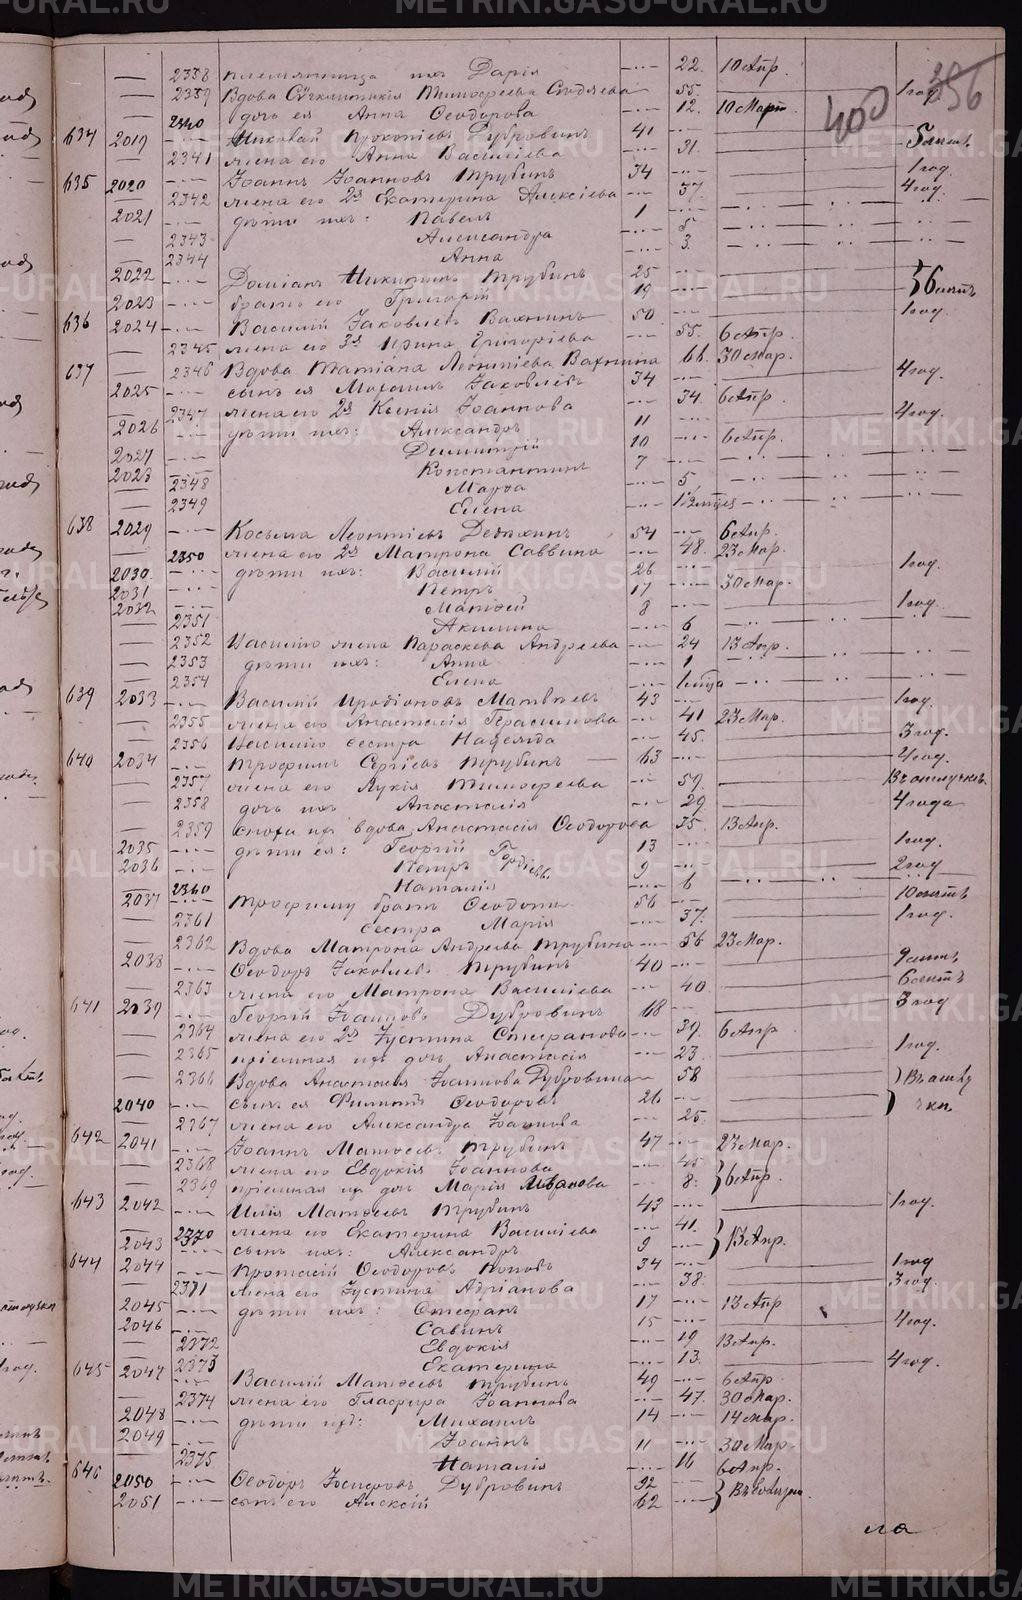 METRIKI.GASO-URAL.RU
400 396
— 2338 племянница их Дарія —··— 22. 10 Апр.
— 2339 Вдова Сѵнклитикія Тимоѳеева —··— 55. — 1 год.
— 2340 дочь ея Анна Ѳеодорова —··— 12. 10 Март
634 2019 —·— Николай Прокопіевъ Дубровинъ 41 —··— — 5 лѣтъ
— 2341 жена его Анна Василіева —··— 31. — 1 год.
635 2020 —·— Іоаннъ Іоанновъ Трубинъ 34 —··— — 4 год.
— 2342 жена его 2я Екатерина Алексіева —··— 37.
2021 —·— дѣти ихъ: Павелъ 1 —··—
— 2343 Александра —··— 5
— 2344 Анна —··— 3.
2022 —·— Доміанъ Никитинъ Трубинъ 25 —··— } 6 лѣтъ
2023 —·— братъ его Григорій 19 —··—
636 2024 —·— Василій Іаковлевъ Вахнинъ 50 —··— — 1 год.
— 2345 жена его 3я Ирина Григоріева —··— 55. 6 Апр.
637 — 2346 Вдова Татіана Леонтіева Вахнина —··— 66. 30 Мар.
2025 —·— сынъ ея Михаилъ Іаковлевъ 34 —··— — 4 год.
— 2347 жена его 2я Ксенія Іоаннова —··— 34. 6 Апр.
2026 —·— дѣти ихъ: Александръ 11 —··— — 4 год.
2027 —·— Димитрій 10 —··— 6 Апр.
2028 —·— Константинъ 7 —··—
— 2348 Марѳа —··— 5
— 2349 Елена —··— 1½ мѣс
638 2029 —·— Косьма Леонтіевъ 54 —··— 6 Апр.
— 2350 жена его 2я Матрона Саввина —··— 48. 23 Мар.
2030 —·— дѣти ихъ: Василій 26 —··— — 1 год.
2031 —·— Петръ 17 —··— 30 Мар.
2032 —·— Матѳей 8 —··— — 1 год.
— 2351 Акилина —··— 6
— 2352 Василію жена Параскева Андреева —··— 24 13 Апр.
— 2353 дѣти ихъ: Анна —··— 1
— 2354 Елена —··— 1 мѣся
639 2033 —·— Василій Иродіоновъ Матвѣевъ 43 —··— — 1 год.
— 2355 жена его Анастасія Герасимова —··— 41 23 Мар.
— 2356 Василію сестра Надежда —··— 45. — 3 год.
640 2034 —·— Трофимъ Сергіевъ Трубинъ 63 —··— — 2 год.
— 2357 жена его Лукія Тимоѳеева —··— 59. — Въ отлучкѣ.
— 2358 дочь ихъ Анастасія —··— 29. — 4 года
— 2359 сноха их вдова Анастасія Ѳеодорова 35. 13 Апр.
2035 —·— дѣти ея: Георгій 13 —··— — 1 год.
2036 —·— Петръ 9 —··— — 2 год
— 2360 Наталія —··— 6
2037 —·— Трофиму братъ Ѳеодотъ 56 —··— — 10 лѣтъ
— 2361 сестра Марія —··— 37. — 1 год.
— 2362 Вдова Матрона Андреева Трубина —··— 56 23 Мар.
2038 —·— Ѳеодоръ Іаковлевъ Трубинъ 40 —··— — 9 лѣтъ
— 2363 жена его Матрона Василіева —··— 40. — 6 лѣтъ
641 2039 —·— Георгій Іоанновъ Дубровинъ 68 —··— — 3 год
— 2364 жена его 2я Іустина Стефанова —··— 39. 6 Апр
— 2365 пріемная их дочь Анастасія —··— 23. — 1 год.
— 2366 Вдова Анастасія Іоаннова Дубровина —··— 58 } Въ отлу
2040 —·— сынъ ея Филиппъ Ѳеодоровъ 26 —··— } чкѣ
— 2367 жена его Александра Іоаннова —··— 25.
642 2041 —·— Іоаннъ Матѳеевъ Трубинъ 47 —··— 23 Мар.
— 2368 жена его Евдокія Іоаннова —··— 45. } 6 Апр.
— 2369 пріемная их дочь Марія Иванова —··— 8.
643 2042 —·— Илія Матѳеевъ Трубинъ 43 —··— — 1 год.
— 2370 жена его Екатерина Василіева —··— 41. } 13 Апр.
2043 —·— сынъ ихъ: Александръ 9 —··—
644 2044 —·— Протасій Ѳеодоровъ Поповъ 34 —··— — 1 год
— 2371 жена его Іустина Адріанова —··— 38. — 3 год.
2045 —·— дѣти ихъ: Стефанъ 17 —··— 13 Апр
2046 —·— Савинъ 15 —··— — 4 год.
— 2372 Евдокія —··— 19 13 Апр.
— 2373 Екатерина —··— 13. — 4 год.
645 2047 —·— Василій Матѳеевъ Трубинъ 49 —··— 6 Апр
— 2374 жена его Глафира Іоаннова —··— 47. 30 Мар.
2048 —·— дѣти их: Михаилъ 14 —··— 14 Мар.
2049 —·— Іоаннъ 11 —··— 30 Мар.
— 2375 Наталія —··— 16 6 Апр.
646 2050 —·— Ѳеодоръ Іосифовъ Дубровинъ 92 —··—
2051 —·— сынъ его Алексій 62 —··—
ла